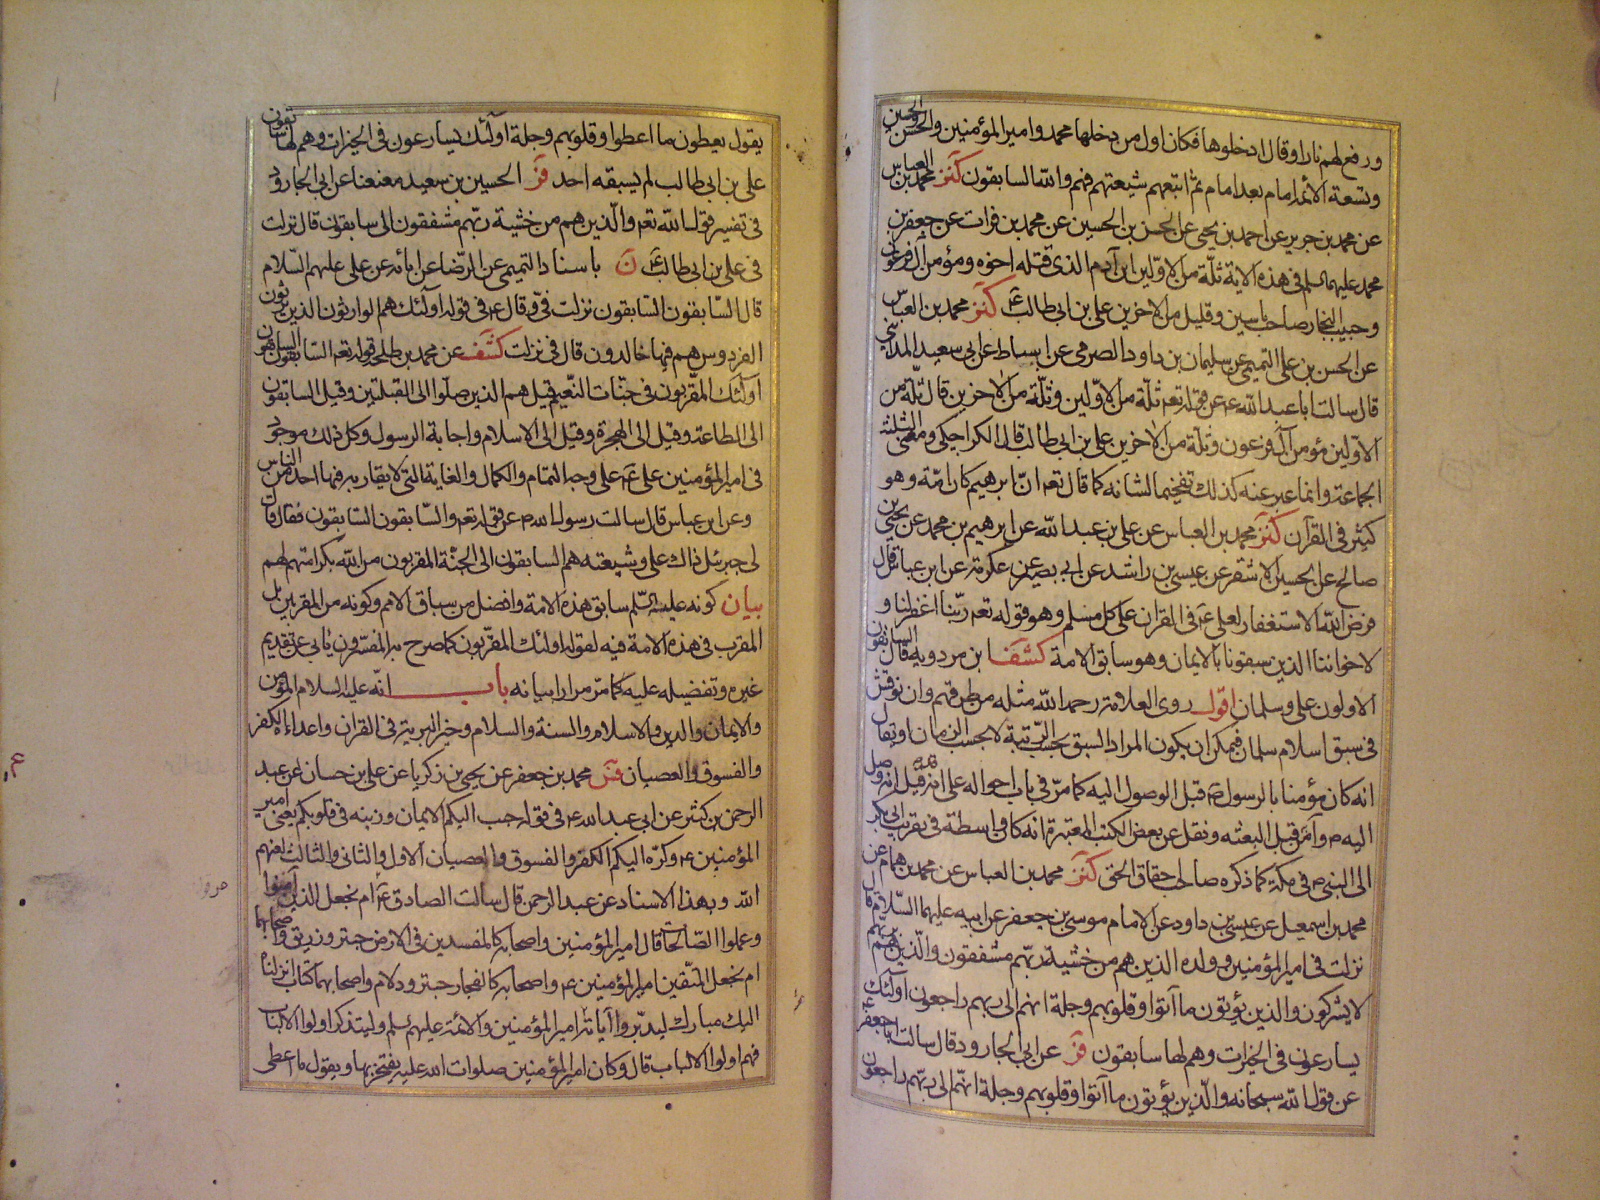 ورفع لهم نارا وقال ادخلوها فكان اول من دخلها محمد وامير المؤمنين والحسن والحسين
وتسعة الائمة امام بعد امام ثم اتبعهم شيعتهم فهم والله السابقون كنز محمد بن العباس
عن محمد بن جرير عن احمد بن يحيى عن الحسن بن الحسين عن محمد بن فرات عن جعفر بن
محمد عليهما السلم فى هذه الاية ثلّة من الاوّلين ابن آدم الذى قتله اخوه ومؤمن آل فرعون
وحبيب النجار صاحب ياسين وقليل من الاخرين على بن ابى طالب ع كنز محمد بن العباس
عن الحسن بن على التميمى عن سليمان بن داود الصرمى عن اسباط عن ابى سعيد المدائنى
قال سالت ابا عبد الله ع عن قوله تعه ثلّة من الاوّلين وثلّة من الاخرين قال ثلّة من
الاوّلين مؤمن آل فرعون وثلّة من الاخرين على بن ابى طالب قال الكراجكى ومعنى الثلة
الجماعة وانما عبر عنه كذلك تفخيما لشانه كما قال تعه انّ ابرهيم كان امّة وهو
كثير فى القرآن كنز محمد بن العباس عن على بن عبد الله عن ابرهيم بن محمد عن يحيى بن
صالح عن الحسين الاشقر عن عيسى بن راشد عن ابى بصير عن عكرمة عن ابن عباس قال
فرض الله الاستغفار لعلى ع فى القران على كل مسلم وهو قوله تعه ربّنا اغفر لنا و
لاخواننا الذين سبقونا بالايمان وهو سابق الامة كشف ابن مردويه قال السابقون
الاولون على وسلمان اقول روى العلامة رحمه الله مثله من طرقهم وان نوقش
فى سبق اسلام سلمان فيمكن ان يكون المراد السبق بحسب الرّتبة لا بحسب الزمان او يقال
انه كان مؤمنا بالرسول ص قبل الوصول اليه كما مرّ فى باب احواله على انه قيل انه وصل
اليه ص وآمن قبل البعثه ونقل عن بعض الكتب المعتبرة انه كان واسطة فى تقريب ابى بكر
الى النبى ص فى مكة كما ذكره صاحب احقاق الحق كنز محمد بن العباس عن محمد بن همام عن
محمد بن اسمعيل عن عيسى بن داود عن الامام موسى بن جعفر عن ابيه عليهما السّلام قال
نزلت فى امير المؤمنين وولده الذين هم من خشية ربّهم مشفقون والّذين هم بربّهم
لا يشركون والذين يؤتون ما آتوا وقلوبهم وجلة انهم الى ربهم راجعون اولئك
يسارعون فى الخيرات وهم لها سابقون فر عن ابى الجارود قال سالت ابا جعفر ع
عن قول الله سبحانه والّذين يؤتون ما آتوا وقلوبهم وجلة انّهم الى ربّهم راجعون
يقول يعطون ما اعطوا وقلوبهم وجلة اولئك يسارعون فى الخيرات وهم لها سابقون
على بن ابى طالب لم يسبقه احد فر الحسين بن سعيد معنعنا عن ابى الجارود
فى تفسير قول الله تعه والّذين هم من خشية ربّهم مشفقون الى سابقون قال نزلت
فى على بن ابى طالب ع ن باسناد التميمى عن الرّضا عن ابائه عن على عليهم السّلام
قال السّابقون السّابقون نزلت فىّ وقال ع فى قوله اولئك هم الوارثون الذين يرثون
الفردوس هم فيها خالدون قال فى نزلت كشف عن محمد بن طلحة قوله تعه السّابقون السابقون
اولئك المقرّبون فى جنّات النّعيم قيل هم الذين صلّوا الى القبلتين وقيل السابقون
الى الطاعة وقيل الى الهجرة وقيل الى الاسلام واجابة الرسول وكل ذلك موجود
فى امير المؤمنين على ع على وجه التمام والكمال والغاية التى لا يقاربه فيها احد من الناس
وعن ابن عباس قال سالت رسول الله ص عن قوله تعه والسّابقون السّابقون فقال قال
لى جبرئيل ذاك على وشيعته هم السابقون الى الجنّة المقربون من الله بكرامته لهم
بيان كونه عليه السّلم سابق هذه الامة وافضل من سباق الامم وكونه من المقربين بل
المقرب فى هذه الامة فيه لقوله اولئك المقرّبون كما صرح به المفسّرون يابى عن تقديم
غيره وتفضيله عليه كما مرّ مرارا بيانه باب انّه عليه السلام المؤمن
والايمان والدين والاسلام والسنة والسلام وخير البرية فى القران واعداءه الكفر
والفسوق والعصيان فس محمد بن جعفر عن يحيى بن زكريا عن على بن حسان عن عبد
الرحمن بن كثير عن ابى عبد الله ع فى قوله حبب اليكم الايمان وزينه فى قلوبكم يعنى امير
المؤمنين ع وكرّه اليكم الكفر والفسوق والعصيان الاول والثانى والثالث لعنهم
الله وبهذا الاسناد عن عبد الرحمن قال سالت الصادق ع ام نجعل الذين آمنوا
وعملوا الصّالحات قال امير المؤمنين واصحابه كالمفسدين فى الارض حبتر وزريق واصحابهما
ام نجعل المتّقين امير المؤمنين ع واصحابه كالفجار حبتر ودلام واصحابهما كتاب انزلناه
اليك مبارك ليدبّروا آياته امير المؤمنين والائمة عليهم السلم وليتذكر اولوا الالباب
فهم اولوا الالباب قال وكان امير المؤمنين صلوات الله عليه يفتخر بها ويقول ما اعطى